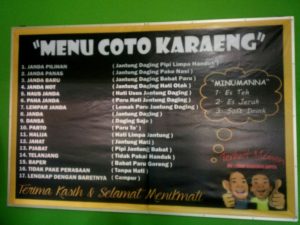 "MENU COTO KARAENG"
1. JANDA PILIHAN ( Jantung Daging Pipi Limpa Handuk )
2. JANDA PANAS ( Jantung Daging Pake Nasi )
3. JANDA BARU ( Jantung Daging Babat Paru )
4. JANDA HOT ( Jantung Daging Hati Otak )
6. HAUS JANDA ( Hati Usus Jantung Daging )
6. PAHA JANDA ( Paru Hati Jantung Daging )
7. LEMPAR JANDA ( Lemak Paru Jantung Daging )
8. JANDA ( Jantung Daging )
9. DANSA ( Daging Saja )
10. PARTO ( Paru To' )
11. HALIJA ( Hati Limpa Jantung )
12. JAHAT ( Jantung Hati )
13. PIJABAT ( Pipi Jantung Babat )
14. TELANJANG ( Tidak Pakai Handuk )
15. BAPER ( Babat Paru Goreng )
16. TIDAK PAKE PERASAAN ( Tanpa Hati )
17. LENGKAP DENGAN BARETNYA ( Campur )
"MINUMANNA"
1- Es Teh
2- Es Jeruk
3- Soft Drink
Terima Kasih & Selamat Menikmati